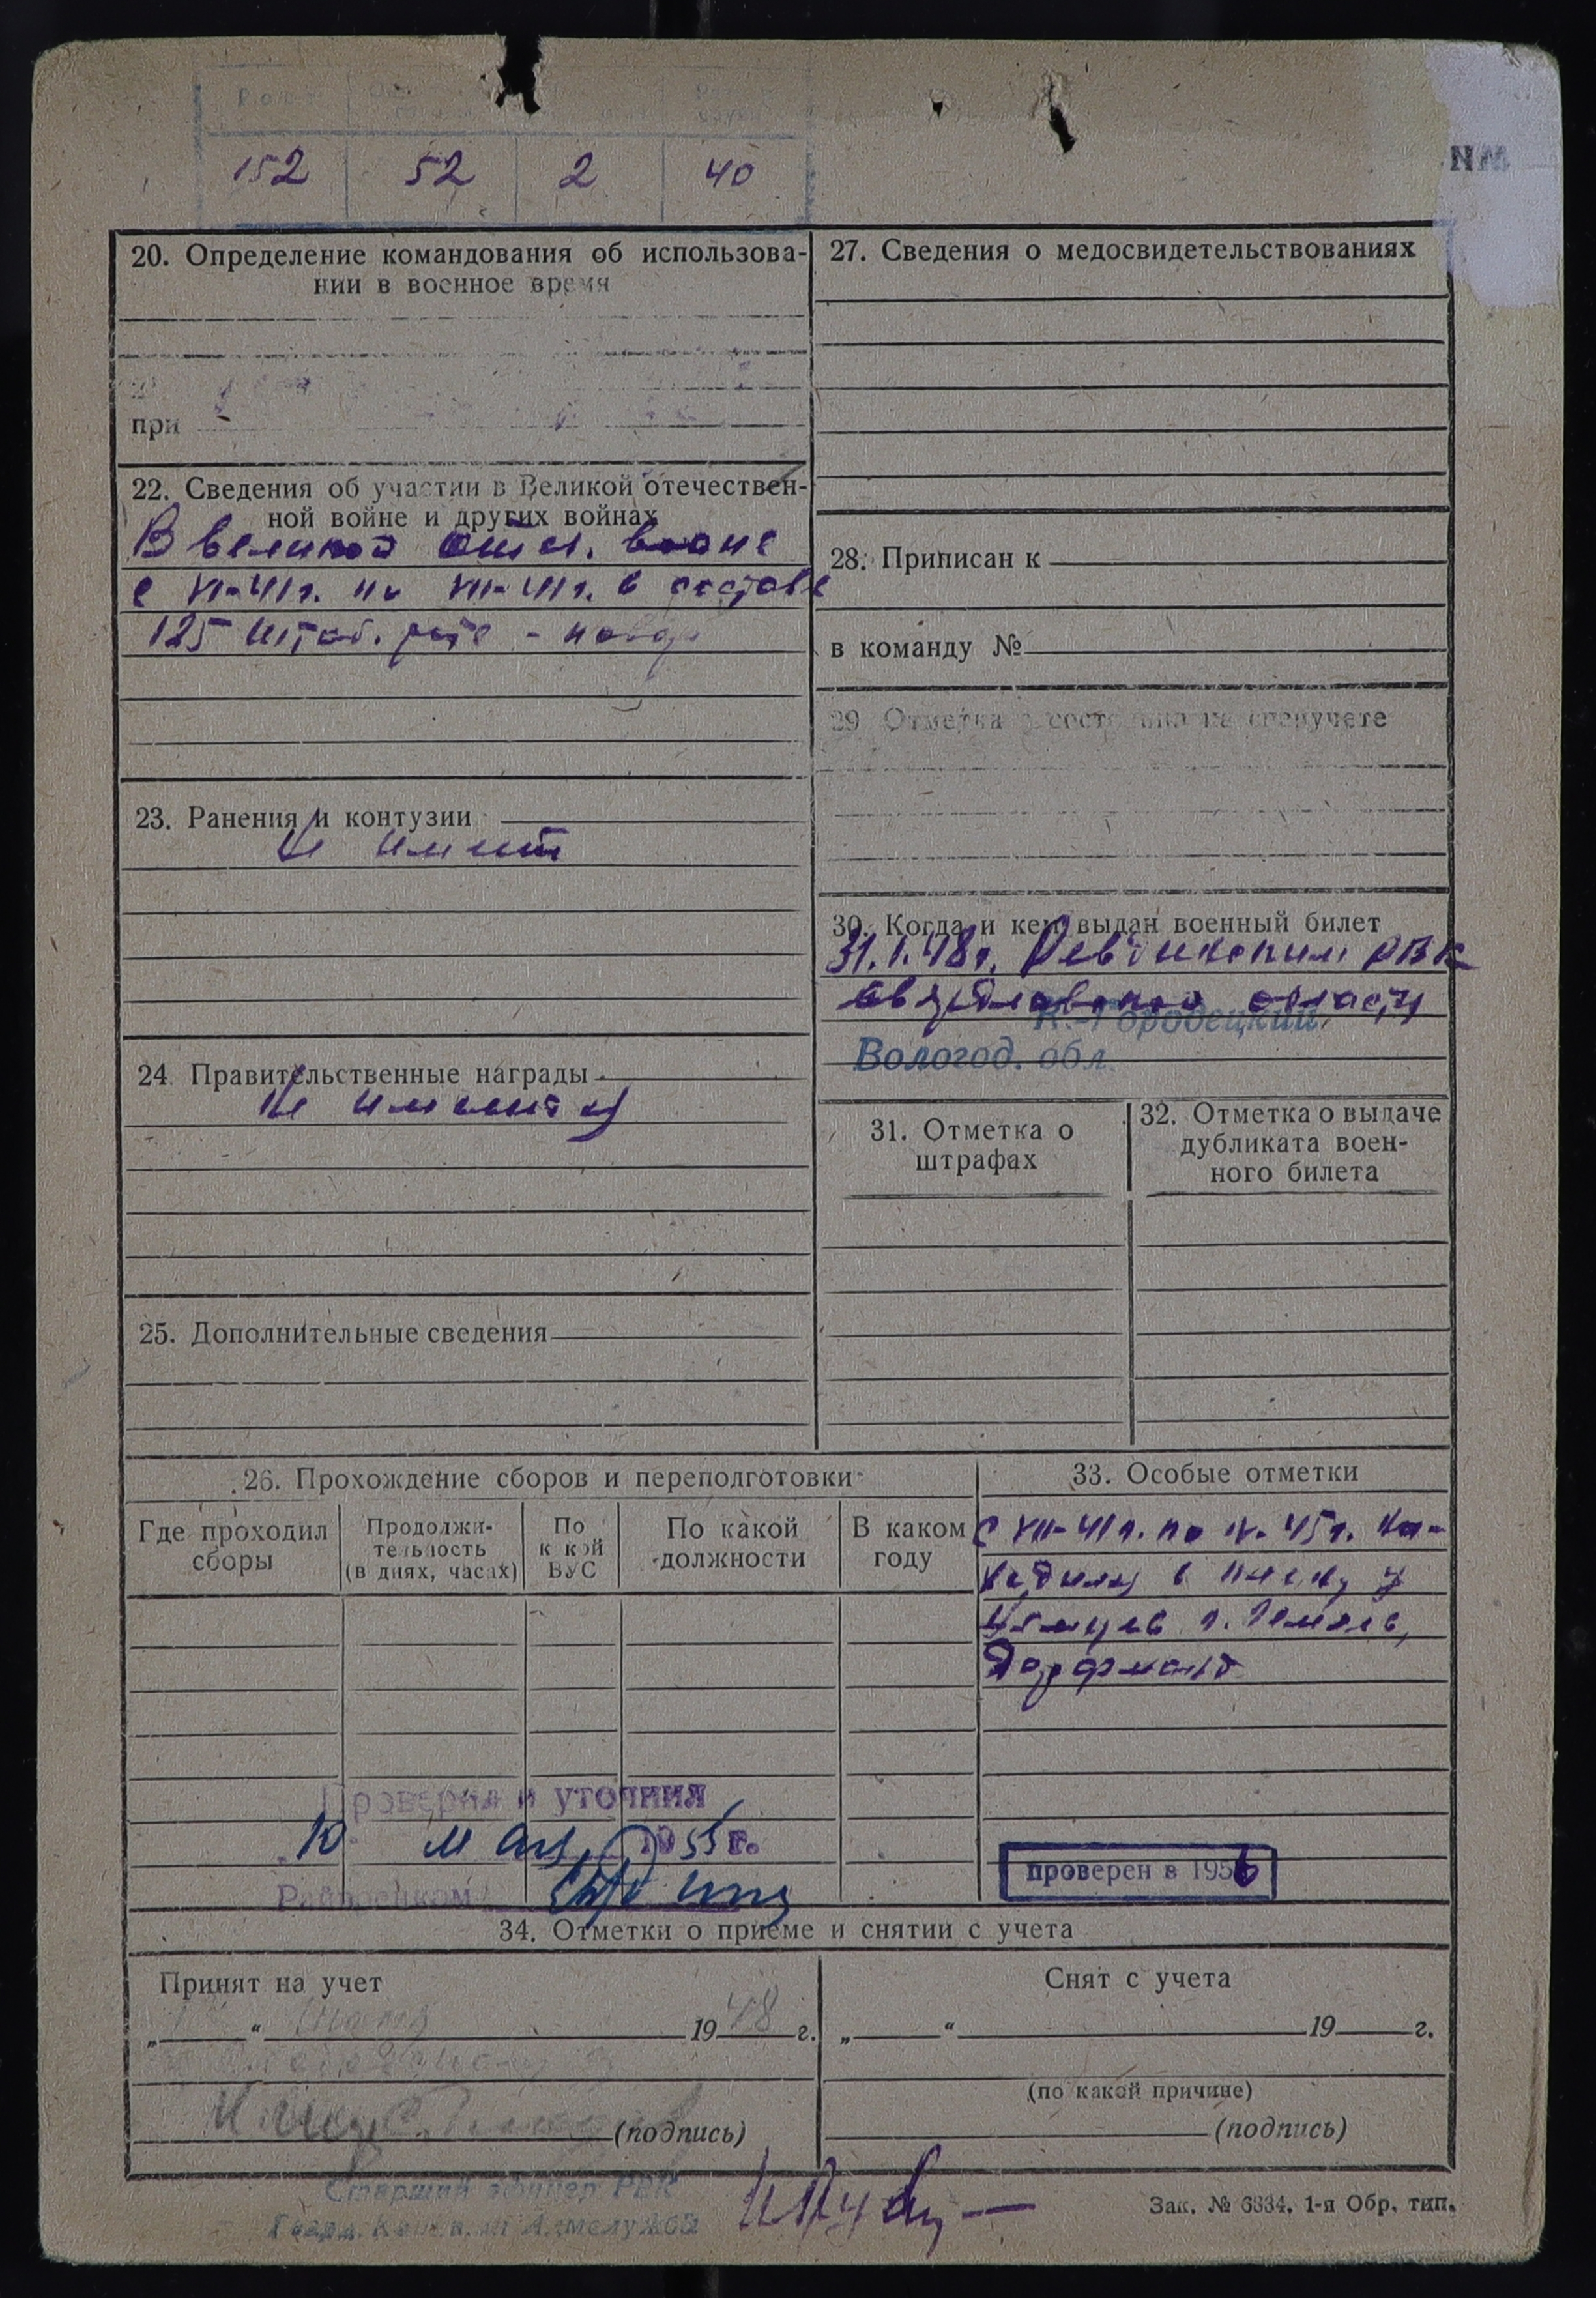 152 52 2 40
20. Определение командования об использова-
нии в военное время
при
22. Сведения об участии в Великой отечествен-
ной войне и других войнах
В великой отеч. войне
с VI-41г. по VII-41г. в составе
125 штаб. роте - повар
23. Ранения и контузии
Не имеет
24. Правительственные награды
Не имеет
25. Дополнительные сведения
27. Сведения о медосвидетельствованиях
28. Приписан к
в команду №
29. Отметка о состоянии на спецучете
30. Когда и кем выдан военный билет
31.1.48г. Ревдинским РВК
Свердловской области
К.-Городецкий
Вологод. обл.
31. Отметка о
штрафах
32. Отметка о выдаче
дубликата воен-
ного билета
26. Прохождение сборов и переподготовки
Где проходил
сборы
Продолжи-
тельность
(в днях, часах)
По
какой
ВУС
По какой
должности
В каком
году
33. Особые отметки
С VII-41г. по IV-45г. на-
ходился в плену у
немцев г.
Проверил и уточнил
10 мая 1955г.
Райвоенком
проверен в 1956
34. Отметки о приеме и снятии с учета
Принят на учет
„ “ 1948 г.
(подпись)
Снят с учета
„ “ 19 г.
(по какой причине)
(подпись)
Старший офицер РВК
Зак. № 6334. 1-я Обр. тип.